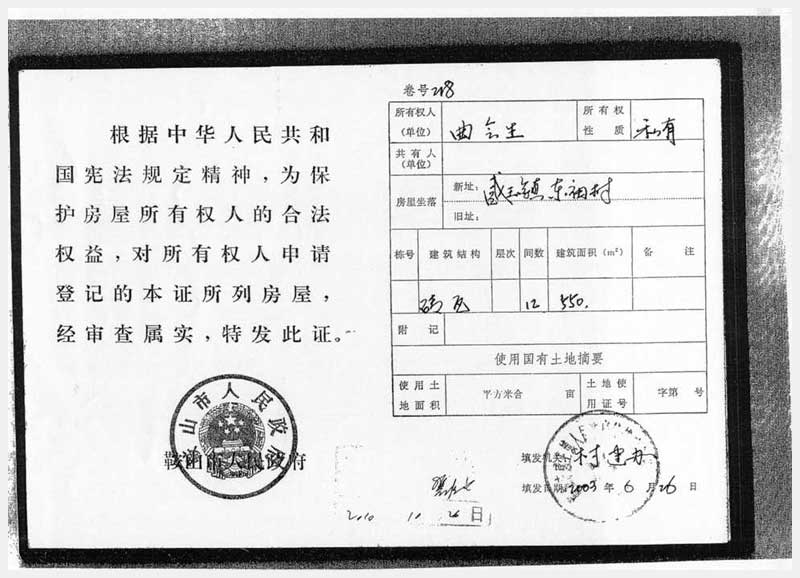 根据中华人民共和
国宪法规定精神，为保
护房屋所有权人的合法
权益，对所有权人申请
登记的本证所列房屋，
经审查属实，特发此证。
山市人民政府
鞍山市人民政府
卷号 218
所有权人
(单位)
曲会生
所有权
性质
私有
共有人
(单位)
房屋坐落
新址: 镇东 村
旧址:
栋号 建筑结构 层次 间数 建筑面积 (m²) 备注
砖瓦 12 550.
附记
使用国有土地摘要
使用土
地面积
平方米合 亩
土地使
用证号
字第 号
填发机关 村建办
填发日期 2003 年 6 月 26 日
2010 10 26 日